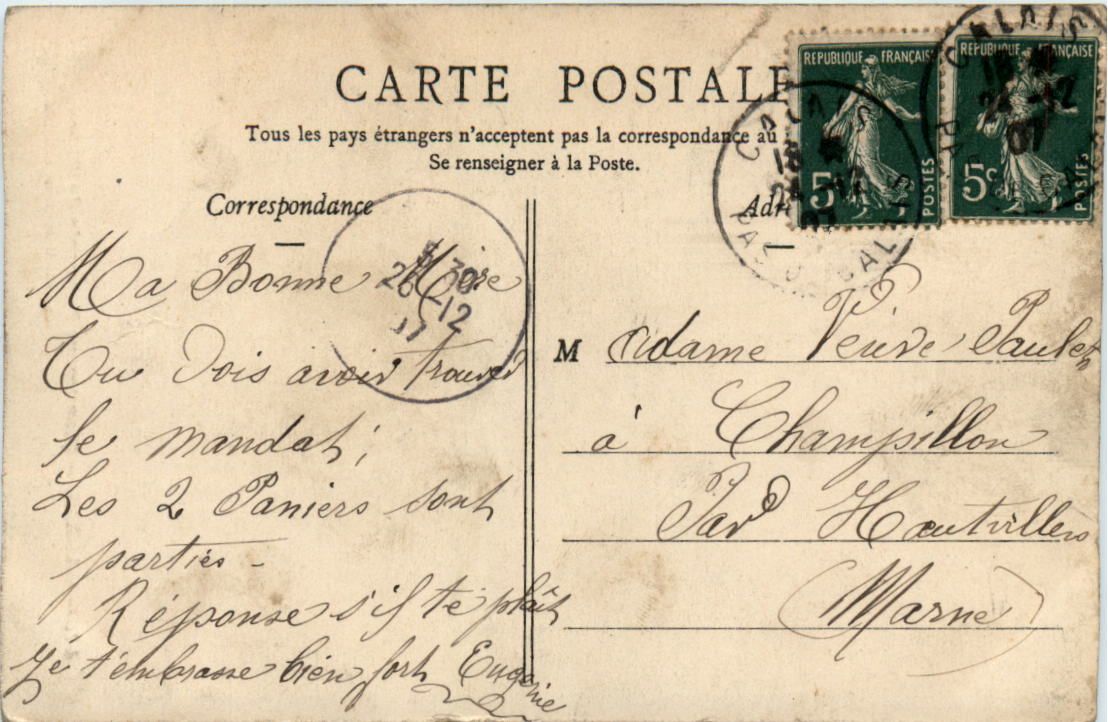 CARTE POSTALE
Tous les pays étrangers n'acceptent pas la correspondance au
Se renseigner à la Poste.
Correspondance
Ma Bonne Mère
Tu dois avoir trouver
le mandat;
Les 2 Paniers sont
parties -
Réponse s'il te plaît
Je t'embrasse bien fort Eugenie
8 30
26 -12
07
REPUBLIQUE FRANÇAISE
5c
POSTES
REPUBLIQUE FRANÇAISE
5c
POSTES
CALAIS
18
24 -12
07
PAS DE CALAIS
CALAIS
18
24 -12
07
PAS DE CALAIS
M adame Veuve Paulet
à Champillon
Par Hautvillers
(Marne)